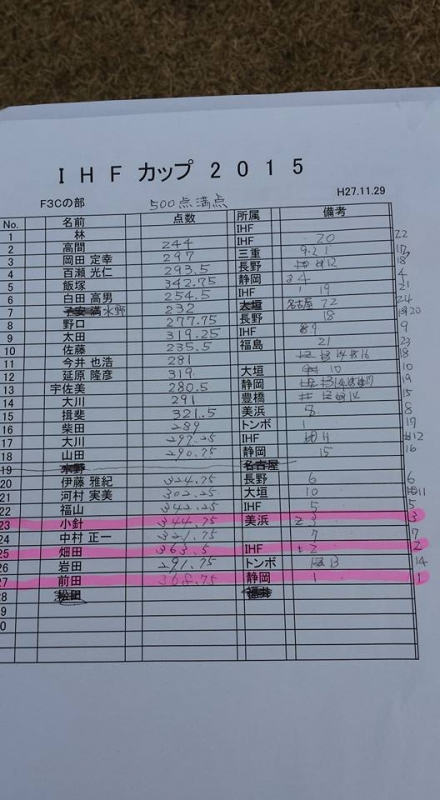 IHFカップ 2015
F3Cの部 500点満点 H27.11.29
No. 名前 点数 所属 備考
1 林 IHF
2 高間 244 IHF 20 22
3 岡田 定幸 297 三重 17
4 百瀬 光仁 293.5 長野 18
5 飯塚 342.75 静岡 4 4
6 白田 高男 254.5 IHF 19 21
7 水野 232 名古屋 22 24
8 野口 277.75 長野 18 20
9 太田 319.25 IHF 9
10 佐藤 235.5 福島 21 23
11 今井 也浩 281 16 18
12 延原 隆彦 319 大垣 10 10
13 宇佐美 280.5 静岡 17 19
14 大川 291 豊橋 14 15
15 揖斐 321.5 美浜 8 8
16 柴田 289 トンボ 1 17
17 大川 297.25 IHF 11 12
18 山田 290.75 静岡 15 16
19 水野 名古屋
20 伊藤 雅紀 324.75 長野 6 6
21 河村 実美 302.25 大垣 10 11
22 福山 342.25 IHF 5 5
23 小針 344.75 美浜 3 3
24 中村 正一 321.75 7 7
25 畑田 363.5 IHF 2 2
26 岩田 291.75 トンボ 13 14
27 前田 368.75 静岡 1 1
28 松田 福井